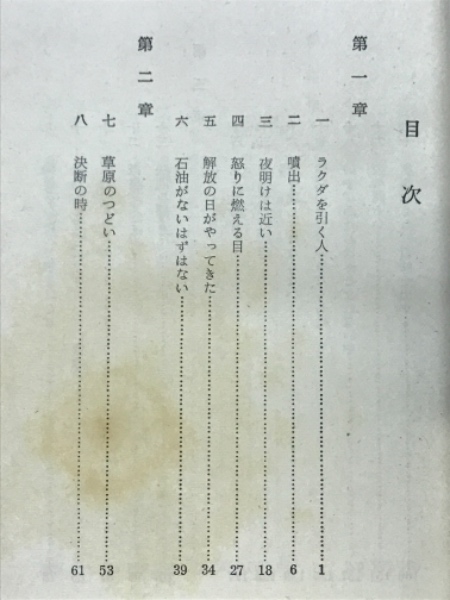 目次
第一章
一 ラクダを引く人 1
二 噴出 6
三 夜明けは近い 18
四 怒りに燃える目 27
五 解放の日がやってきた 34
六 石油がないはずはない 39
第二章
七 草原のつどい 53
八 決断の時 61